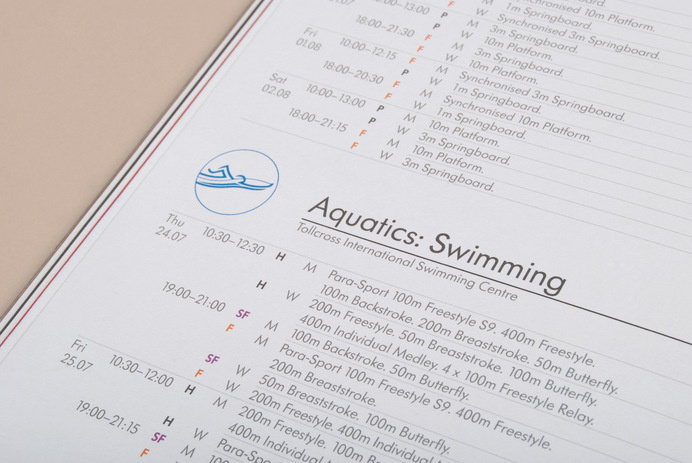 :00–13:00 F
P W Synchronised 3m Springboard.
P M 3m Springboard.
18:00–21:30 F W 10m Platform.
F M 3m Springboard.
Fri 10:00–12:15 F W 10m Platform.
01.08 P M Synchronised 3m Springboard.
18:00–20:30 F W 1m Springboard.
F M Synchronised 10m Platform.
Sat 10:00–13:00 P W 1m Springboard.
02.08 P M 10m Platform.
18:00–21:15 F W 3m Springboard.
F M 10m Platform.
W 3m Springboard.
Aquatics: Swimming
Tollcross International Swimming Centre
Thu 10:30–12:30 H M Para-Sport 100m Freestyle S9. 400m Freestyle.
24.07 100m Backstroke. 200m Breaststroke. 50m Butterfly.
H W 200m Freestyle. 50m Breaststroke. 100m Butterfly.
400m Individual Medley. 4 x 100m Freestyle Relay.
19:00–21:00 SF M 100m Backstroke. 50m Butterfly.
F M Para-Sport 100m Freestyle S9. 400m Freestyle.
200m Breaststroke.
SF W 50m Breaststroke. 100m Butterfly.
F W 200m Freestyle. 400m Individual Medley.
Fri 10:30–12:00 H M 200m Freestyle. 100m
25.07 H W 400m Individual
19:00–21:15 SF M Para-Spo
F 100m